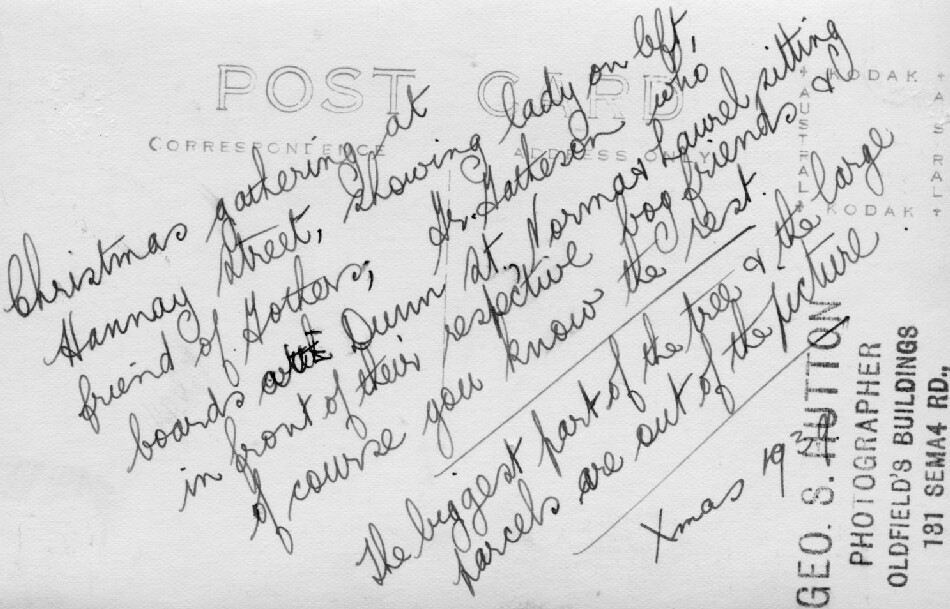 POST CARD
CORRESPONDENCE
ADDRESS ONLY
KODAK
AUSTRAL
KODAK
AUSTRAL
Christmas gathering at
Hannay Street, showing lady on left,
friend of Mothers; Mr. Matheson who
boards Dunn St, Norma & Laurel sitting
in front of their respective boy friends &
of course you know the rest.
The biggest part of the tree & the large
parcels are out of the picture
Xmas 19
GEO. S. HUTTON
PHOTOGRAPHER
OLDFIELD'S BUILDINGS
181 SEMA4 RD.,